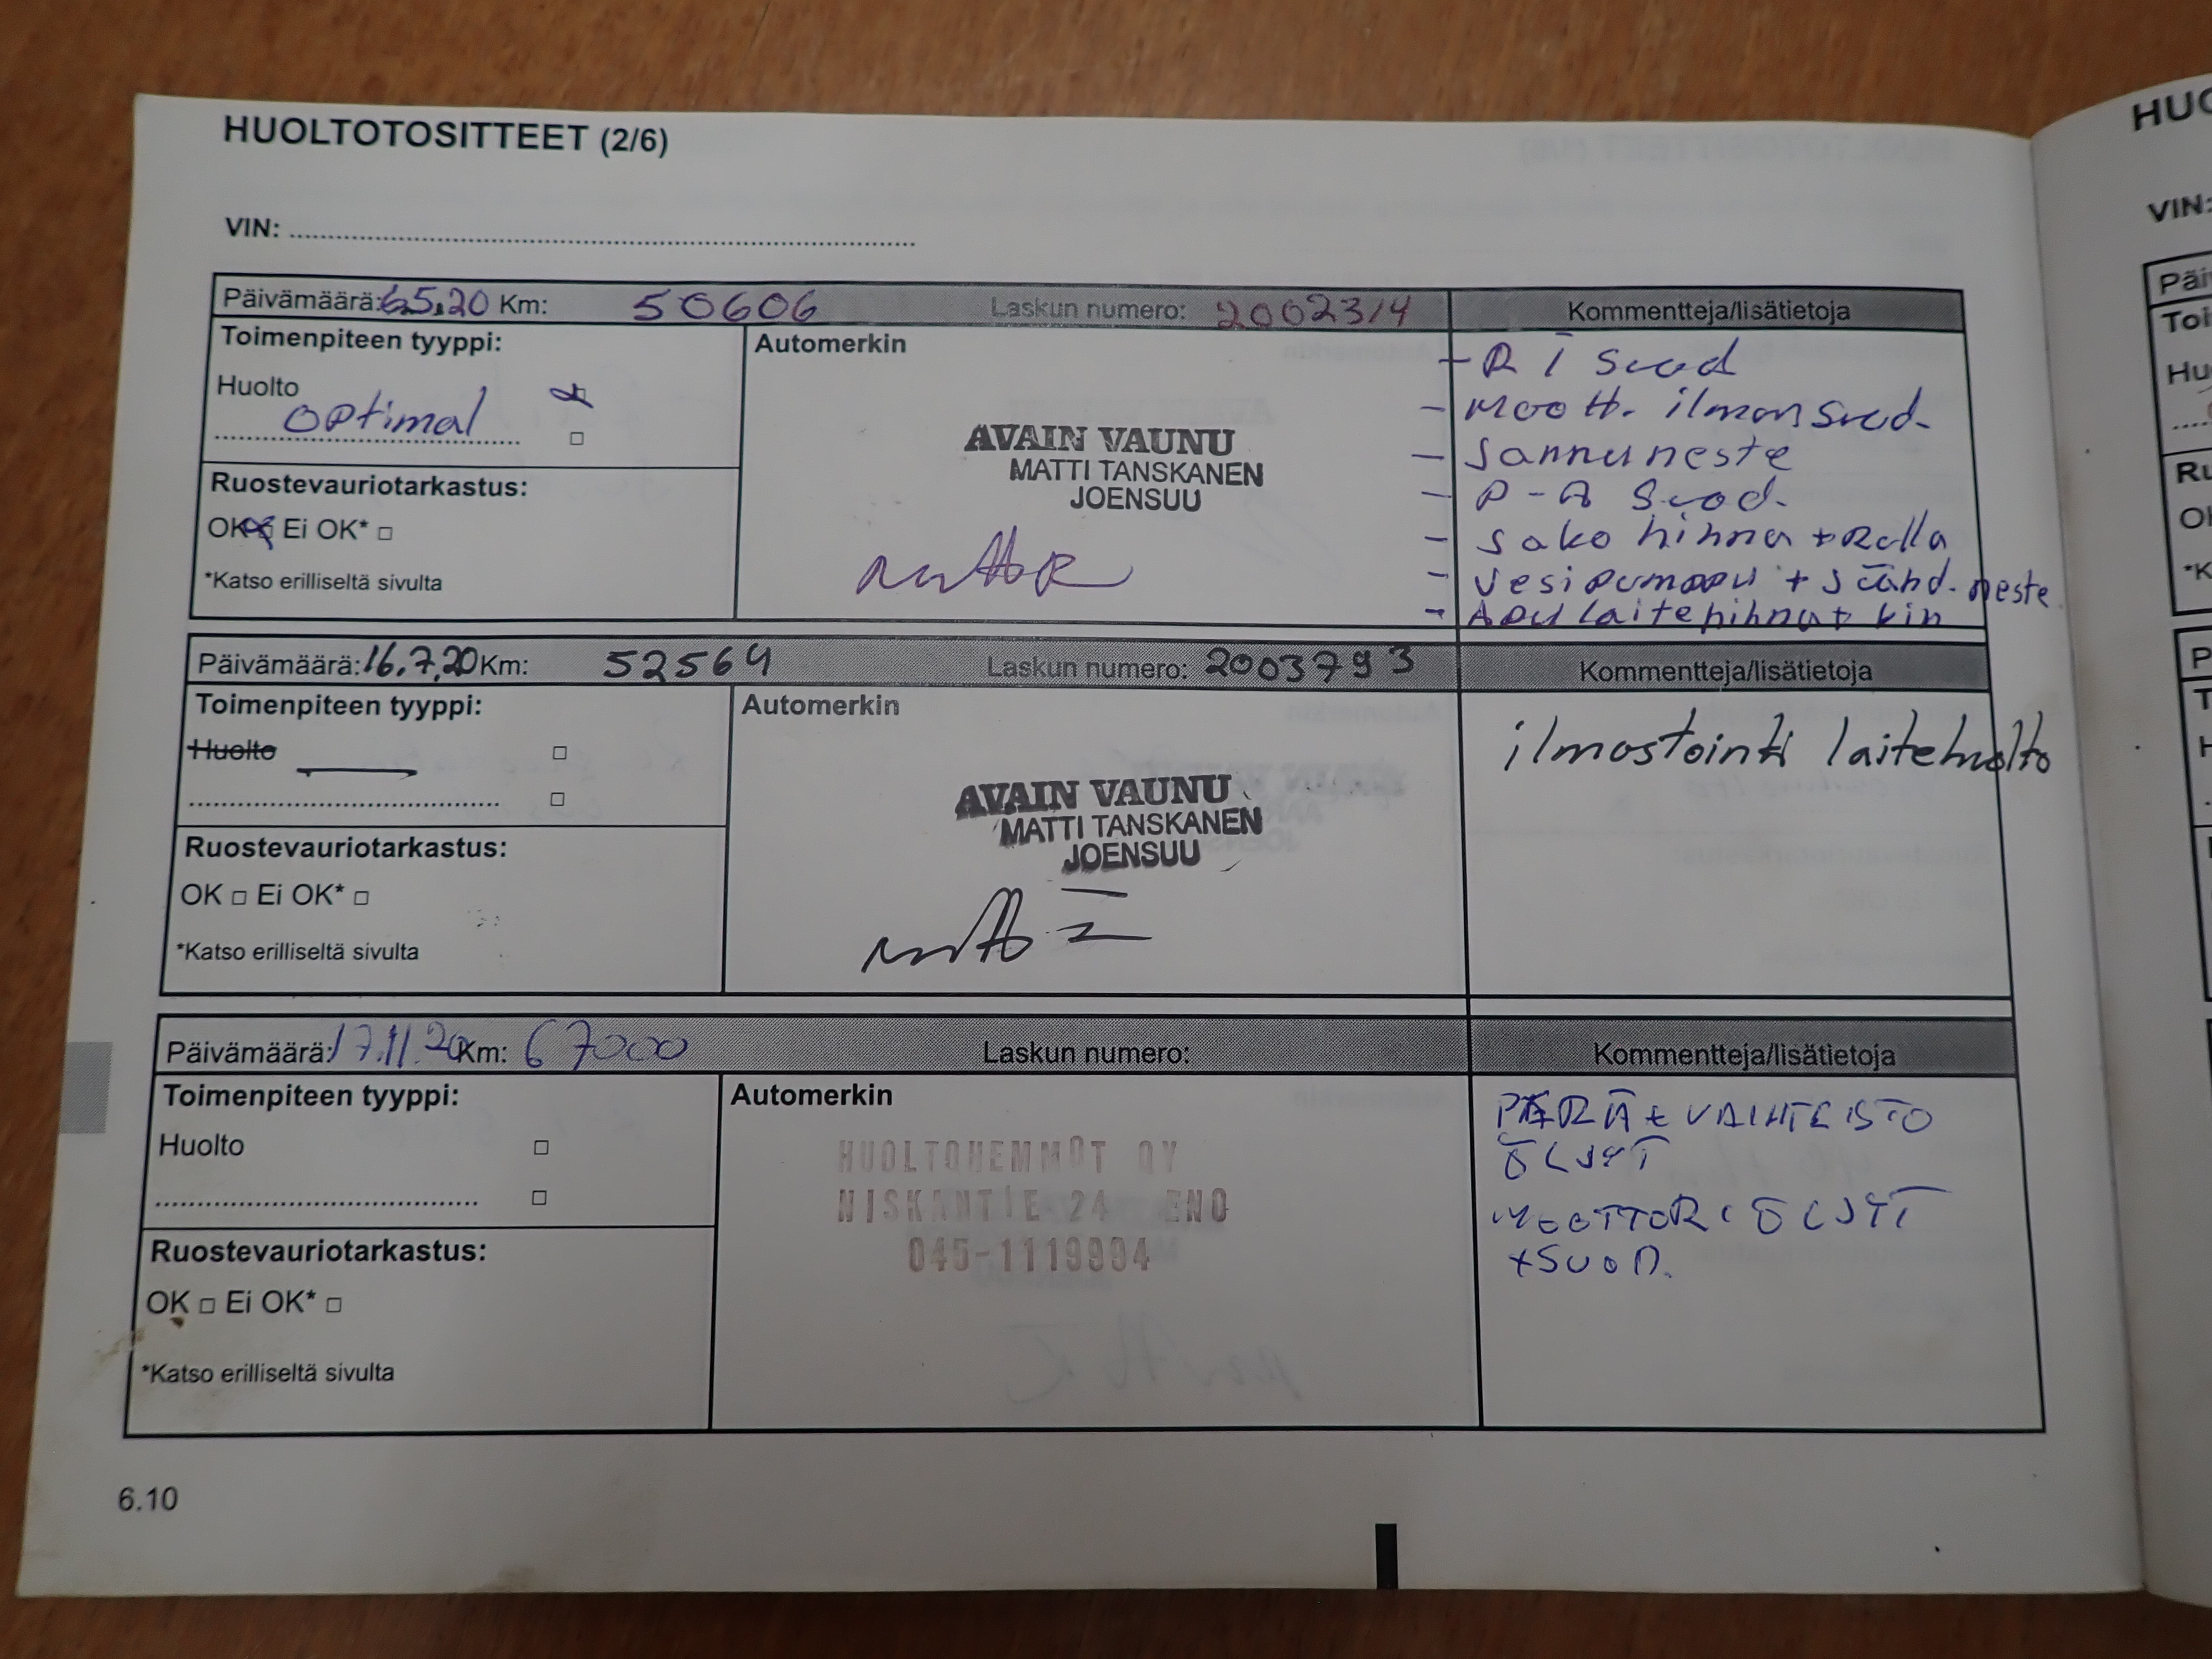 HUOLTOTOSITTEET (2/6)
VIN:
Päivämäärä: 6.5.20 Km: 50606 Laskun numero: 2002314 Kommentteja/lisätietoja
Toimenpiteen tyyppi:
Huolto
optimal
Ruostevauriotarkastus:
OK Ei OK*
*Katso erilliseltä sivulta
Automerkin
AVAIN VAUNU
MATTI TANSKANEN
JOENSUU
- R I suod
- moott. ilman suod.
- Jarruneste
- P-A Suod.
- Jako hihna + Rulla
- vesipumppu + Jäähd. neste
- Apulaitehihna +
Päivämäärä: 16.7.20 Km: 52564 Laskun numero: 2003793 Kommentteja/lisätietoja
Toimenpiteen tyyppi:
Huolto
Ruostevauriotarkastus:
OK Ei OK*
*Katso erilliseltä sivulta
Automerkin
AVAIN VAUNU
MATTI TANSKANEN
JOENSUU
ilmastointi laitehuolto
Päivämäärä: 17.11.20 Km: 67000 Laskun numero: Kommentteja/lisätietoja
Toimenpiteen tyyppi:
Huolto
Ruostevauriotarkastus:
OK Ei OK*
*Katso erilliseltä sivulta
Automerkin
HUOLTOHEMMOT OY
NISKANTIE 24 ENO
045-1119994
PERÄ + VAIHTEISTO
ÖLJYT
MOOTTORIÖLJYT
+SUOD.
6.10
HUO
VIN:
Päiv
Toi
Hu